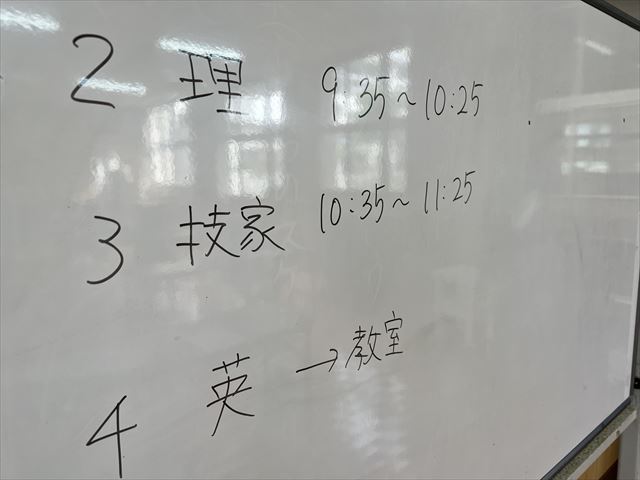 2 理 9:35~10:25
3 技家 10:35~11:25
4 英 →教室